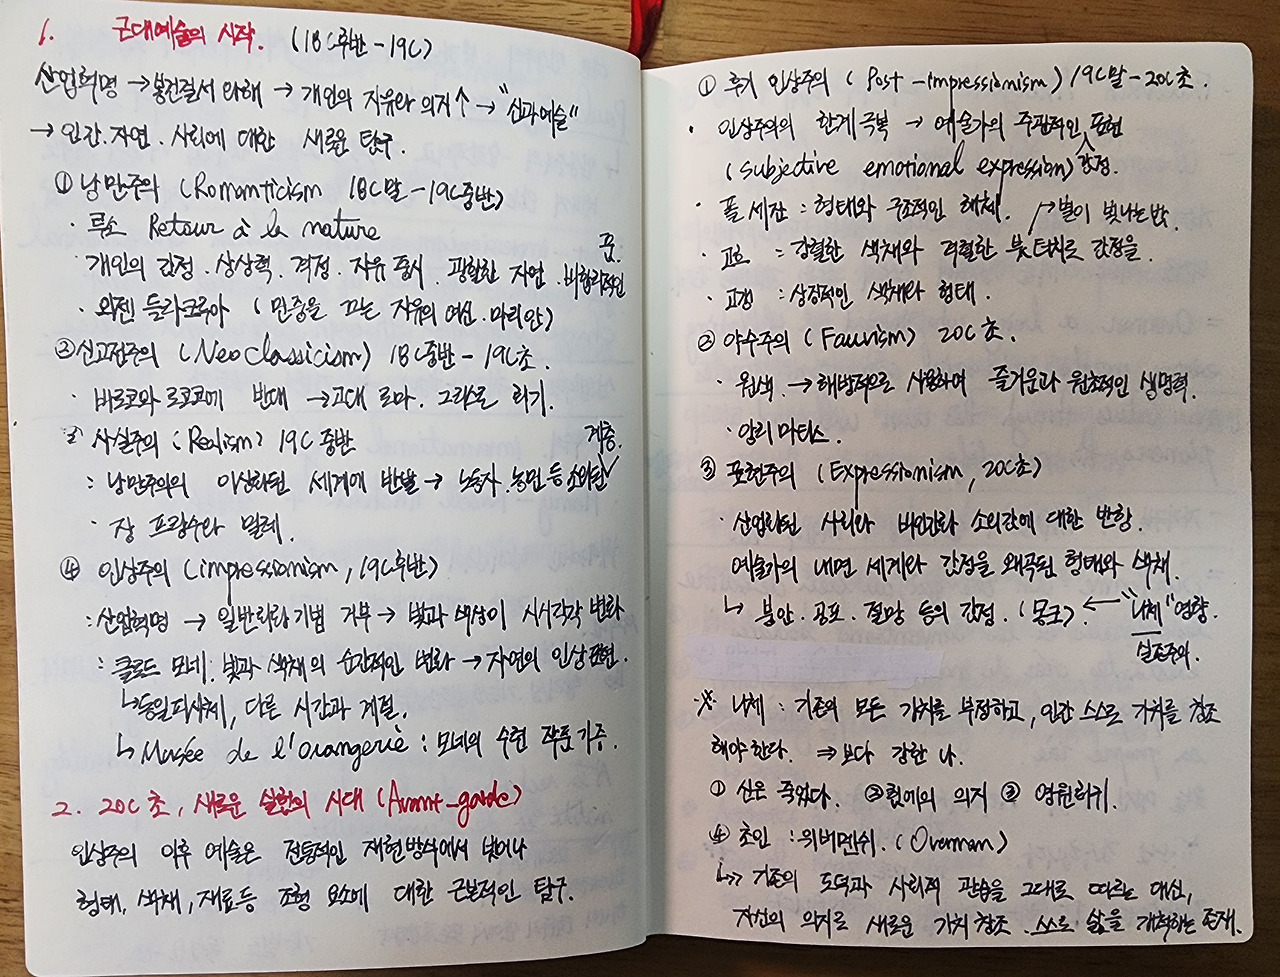 1. 근대예술의 시작. (18C후반-19C)
산업혁명 → 봉건질서 와해 → 개인의 자유와 의지↑ → "신과 예술"
→ 인간.자연.사회에 대한 새로운 탐구.
① 낭만주의 (Romanticism 18C말-19C중반)
· 루소 Retour à la nature
개인의 감정.상상력.격정.자유 중시. 광활한 자연.비합리적인
· 외젠 들라크루아 (민중을 끄는 자유의 여신.마리안)
② 신고전주의 (Neoclassicism) 18C중반-19C초.
· 바로코와 로코코에 반대 → 고대 로마. 그리스로 회귀.
③ 사실주의 (Realism) 19C 중반
계층.
: 낭만주의의 이상화된 세계에 반발 → 노동자.농민 등 소외된
· 장 프랑수와 밀레.
④ 인상주의 (impressionism, 19C후반)
: 산업혁명 → 일반화라 기법 거부 → 빛과 색상이 시시각각 변화
: 클로드 모네: 빛과 색채의 순간적인 변화 → 자연의 인상 표현.
↳동일피사체, 다른 시간과 계절.
↳ Musée de l'Orangerie : 모네의 수련 작품 기증.
2. 20C 초, 새로운 실험의 시대 (Avant-garde)
인상주의 이후 예술은 전통적인 재현방식에서 벗어나
형태, 색채, 재료등 조형 요소에 대한 근본적인 탐구.
① 후기 인상주의 (Post-impressionism) 19C말-20C초.
· 인상주의의 한계 극복 → 예술가의 주관적인 표현
(subjective emotional expression) 감정.
· 폴 세잔 : 형태와 구조적인 해체. → 별이 빛나는 밤.
· 고흐 : 강렬한 색채와 격렬한 붓터치로 감정을.
· 고갱 : 상징적인 색채와 형태.
② 야수주의 (Fauvism) 20C 초.
· 원색 → 해방적으로 사용하여 즐거운과 원초적인 생명력.
· 앙리 마티스.
③ 표현주의 (Expressionism, 20C초)
· 산업화된 사회와 비인간화 소외감에 대한 반항.
예술가의 내면 세계와 감정을 왜곡된 형태와 색채.
↳ 불안.공포.절망 등의 감정. (뭉크) ← "니체" 영향.
실존주의.
※ 니체 : 기존의 모든 가치를 부정하고, 인간 스스로 가치를 창조
해야한다. ⇒ 보다 강한 나.
① 신은 죽었다. ② 힘에의 의지 ③ 영원회귀.
④ 초인 : 위버멘쉬. (Overman)
↳ 기존의 도덕과 사회적 관습을 그대로 따르는 대신,
자신의 의지로 새로운 가치 창조. 스스로 삶을 개척하는 존재.